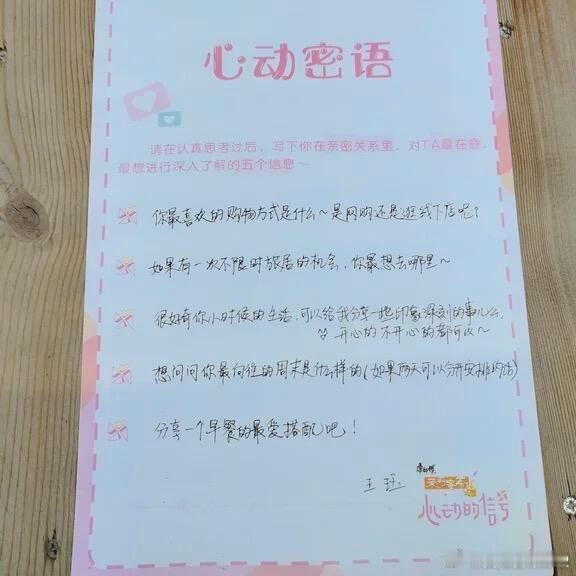 心动密语
请在认真思考过后，写下你在亲密关系里，对TA最在意、
最想进行深入了解的五个信息～
你最喜欢的购物方式是什么～是网购还是逛线下店呢？
如果有一次不限时旅居的机会，你最想去哪里～
很好奇你小时候的生活，可以给我分享一些印象深刻的事儿么，
开心的不开心的都可以～
想问问你最向往的周末是什么样的（如果两天可以分开安排的话）
分享一个早餐的最爱搭配吧！
王珏
心动的信号